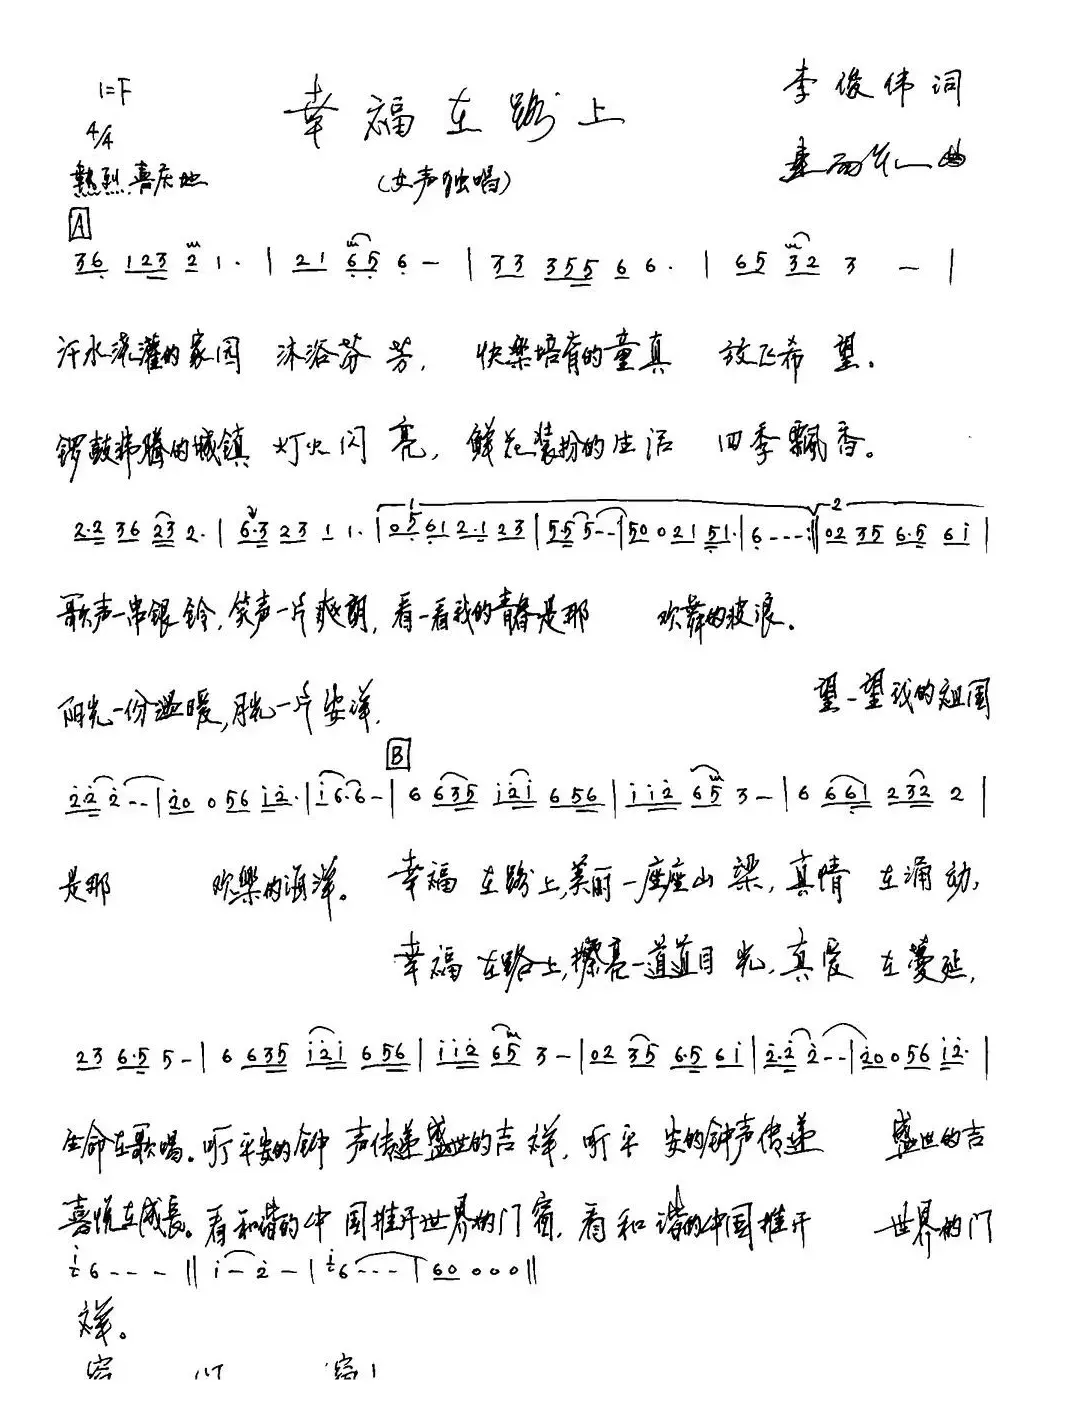 1=F
幸福在路上
李俊伟词
4/4
曲
热烈.喜庆地
(女声独唱)
A
36 123 2 1. | 21 65 6 – | 33 355 6 6. | 65 32 3 – |
汗水浇灌的家园 沐浴芬芳, 快乐培育的童真 放飞希望.
锣鼓沸腾的城镇 灯火闪亮, 鲜花装扮的生活 四季飘香。
1 2
2·2 36 23 2. | 6·3 23 1 1. | 05 61 2·1 23 | 5·5 5-- | 50 0 21 51. | 6 --- :|| 02 35 6·5 6i |
歌声一串银铃,笑声一片爽朗, 看一看我的青春是那 欢舞的波浪。
阳光一份温暖,月光一片安详, 望一望我的祖国
B
i̇ 2̇2̇ 2̇-- | 2̇0 0 56 i2̇. | i6· 6- | 6 635 i2̇i 656 | i i2̇ 65 3 – | 6 661 232 2 |
是那 欢乐的海洋。 幸福 在路上,美丽一座座山梁,真情 在涌动,
幸福 在路上,擦亮一道道目光,真爱 在蔓延,
23 6·5 5 – | 6 635 i2̇i 656 | i i2̇ 65 3 – | 02 35 6·5 6i | 2̇·2̇ 2̇-- | 2̇0 0 56 i2̇. |
生命在歌唱。听平安的钟 声传递盛世的吉祥, 听平 安的钟声传递 盛世的吉
喜悦在成长。看和谐的中国推开世界的门窗, 看和谐的中国推开 世界的门
i6 --- || i – 2̇ – | i6 --- | 60 0 0 0 ||
祥。